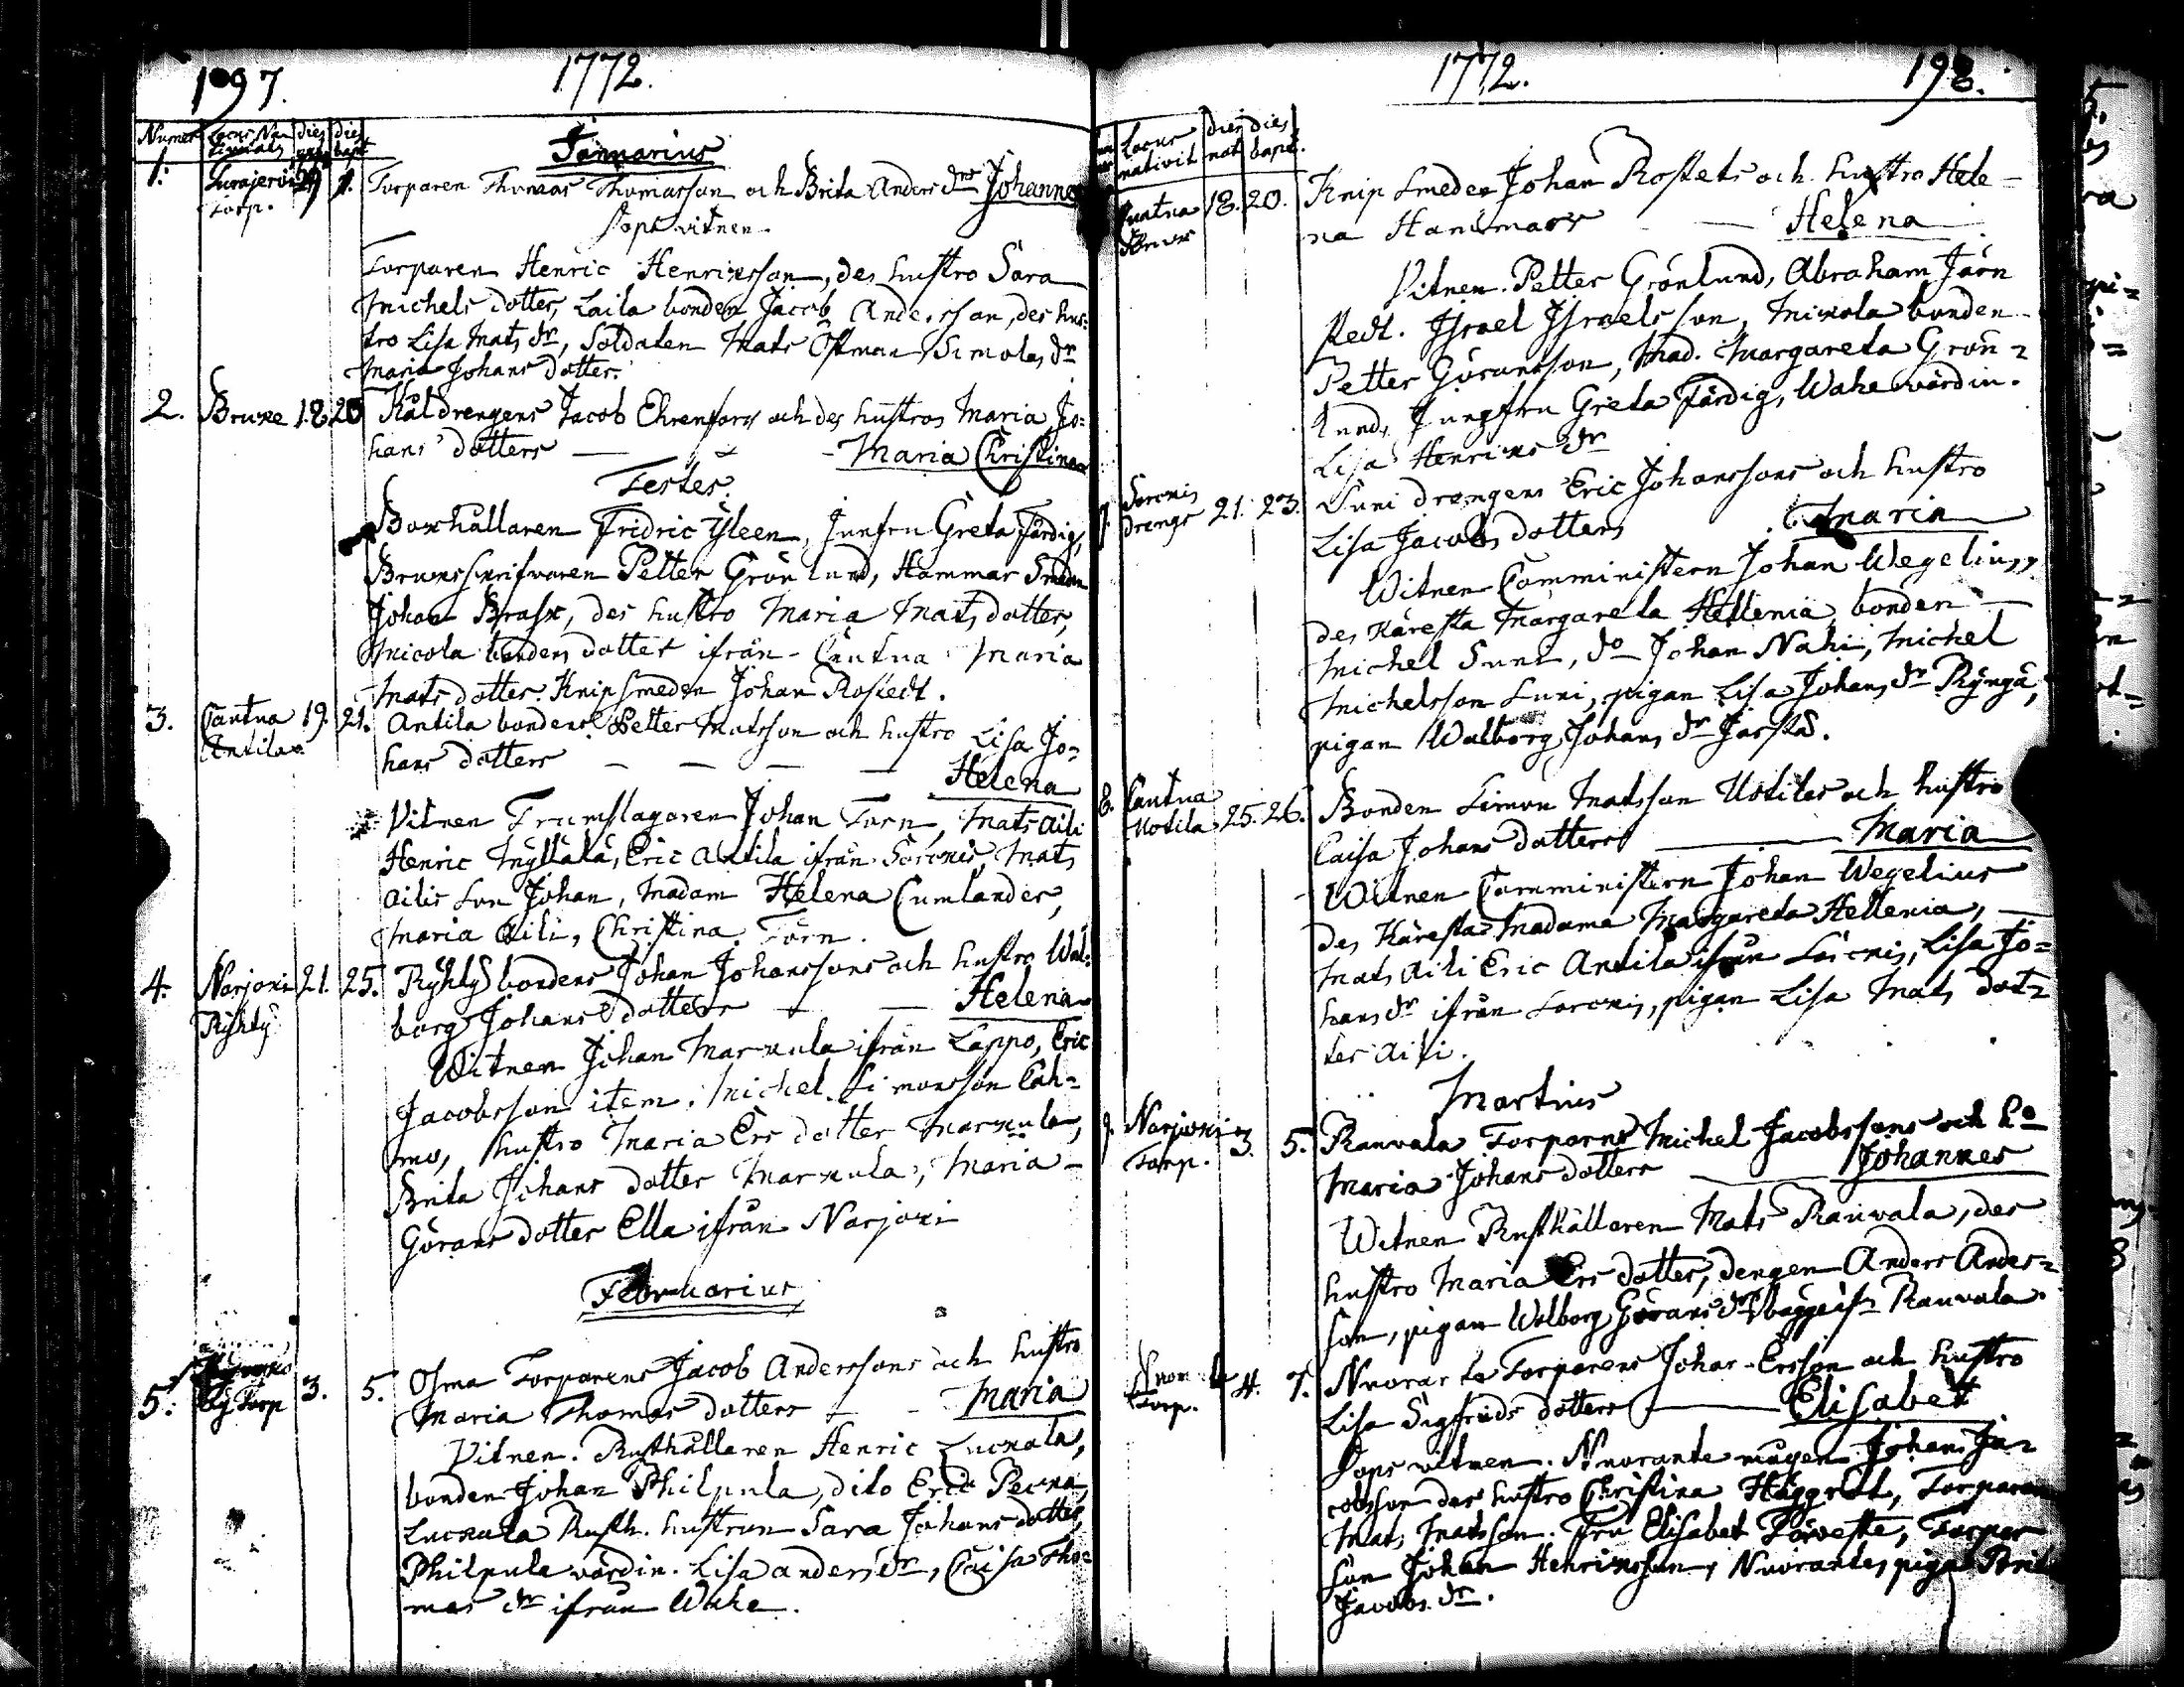 197.
1772.
Numer Locus Nativitatis dies nat dies bapt
Januarius
1. Turajervi Torp. 29 1. Torparen Thomas Thomasson och Brita Anders dr Johannes
Dopsvitnen
Torparen Henric Henricsson, des hustro Sara
Michels dotter, Laila bonden Jacob Andersson, des hus-
tro Lisa Mats dr, Soldaten Mats Östman Simolas dr
Maria Johans dotter.
2. Bruke 18. 20 Kåldrengens Jacob Ehrenfors och des hustros Maria Jo=
hans dotters — Maria Christina
Testes.
Bokhållaren Fridric Yleen, Junfru Greta Färdig,
Bruksskrifvaren Petter Grönlund, Hammar Smeden
Johan Brask, des hustro Maria Mats dotter,
Micola bondens dotter ifrån Cautua Maria
Mats dotter. Knipsmeden Johan Rostedt.
3. Cautua Antila 19. 21. Antila bondens Petter Matsson och hustro Lisa Jo=
hans dotters — — — — Helena
Vitnen Trumslagaren Johan Törn, Mats Aili
Henric Myllälä, Eric Antila ifrån Sorkis, Mats
Ailis son Johan, Madam Helena Cumlander,
Maria Aili, Christina Törn.
4. Narjoki Ryhty 21. 25. Ryhty bondens Johan Johanssons och hustro Wal=
borg Johans dotters — — Helena
Witnen Johan Markula ifrån Lappo, Eric
Jacobsson item. Michel Simonsson Cah=
mo, hustro Maria Ers dotter Markula,
Brita Johans dotter Markula, Maria
Görans dotter Ella ifrån Narjoki
Februarius
5. Torp 3. 5. Osma Torparens Jacob Anderssons och hustro
Maria Thomas dotters — Maria
Vitnen. Rusthållaren Henric Luckala,
bonden Johan Philpula, dito Eric
Luckala Rusth. hustrun Sara Johans dotter,
Philpula värdin. Lisa anders dr, Caisa Tho=
mas dr ifrån Wahe.
1772.
198.
Locus nativit dies nat dies bapt.
Cautua Bruk 18. 20. Knip Smeden Johan Rostets och hustro Hele-
na Hammars — Helena
Vitnen. Petter Grönlund, Abraham Järn
stedt. Israel Israelsson, Mikola bonden
Petter Göransson, Mad. Margareta Grön=
lund, Jungfru Greta Färdig, Wahe wärdin.
Lisa Henrics dr
7. Sorkis drengs 21. 23. Suni drengens Eric Johanssons och hustro
Lisa Jacobs dotters Maria
Witnen Comministern Johan Wegelius,
des Käresta Margareta Hellenia, bonden
Michel Suni, do Johan Nahi, Michel
Michelsson Suni, pigan Lisa Johans dr
pigan Walborg Johans dr
8. Cautua Uotila 25. 26. Bonden Simon Matsson Uotilas och hustro
Caisa Johans dotters — Maria
Witnen Comministern Johan Wegelius
des Käresta Madame Margareta Hellenia,
Mats Aili Eric Antila ifrån Sorkis, Lisa Jo=
hans dr ifrån Sorkis, pigan Lisa Mats dot=
ter Aili.
Martius
9. Narjoki Torp. 3. 5. Rauvala Torparns Michel Jacobssons och ho
Maria Johans dotters — Johannes
Witnen Rusthållaren Mats Rauvala, des
hustro Maria Ers dotter, dengen Anders Anders=
son, pigan Walborg Görans dr bägge ifr Rauvala.
Torp. 4. 7. Nuoranto Torparens Johan Ersson och hustro
Lisa Sigfrids dotters — Elisabet
Dops witnen. Nuoranto mågen Johan Ja=
cobsson des hustro Christina Häggrot, Torparen
Mats Matsson. Fru Elisabet Torpar
Son Johan Henricsson, Nuorantos piga Brita
Jacobs dr.